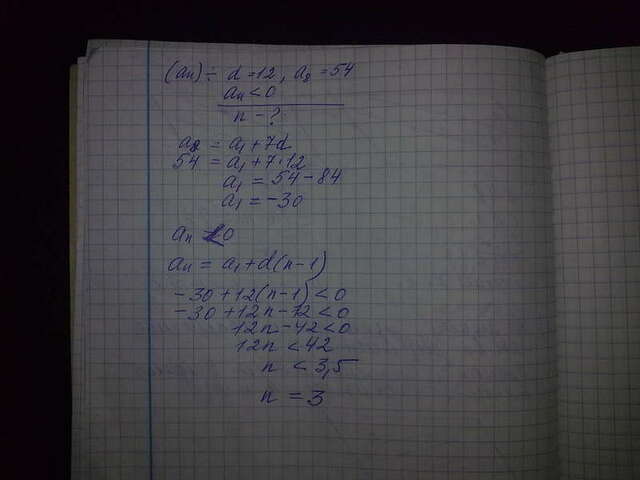 (an) ÷ d = 12, a8 = 54
an < 0
n - ?
a8 = a1 + 7d
54 = a1 + 7·12
a1 = 54 - 84
a1 = -30
an < 0
an = a1 + d(n-1)
-30 + 12(n-1) < 0
-30 + 12n - 12 < 0
12n - 42 < 0
12n < 42
n < 3,5
n = 3